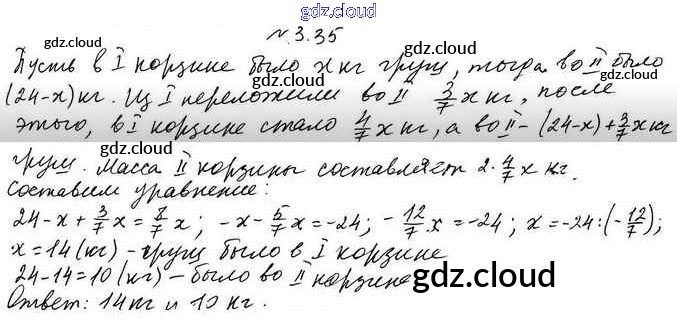 gdz.cloud
№ 3.35
gdz.cloud
gdz.cloud
Пусть в I корзине было x кг груш, тогда во II было
(24-x) кг. Из I переложили во II 3/7 x кг, после
gdz.cloud
этого, в I корзине стало 4/7 x кг, а во II - (24-x)+3/7 x кг
gdz.cloud
груш. Масса II корзины составляет 2·4/7 x кг.
gdz.cloud
Составим уравнение:
24-x+3/7 x=8/7 x; -x-5/7 x=-24; -12/7 x=-24; x=-24:(-12/7);
x=14(кг) - груш было в I корзине
24-14=10(кг) - было во II корзине
gdz.cloud
gdz.cloud
Ответ: 14кг и 10 кг.